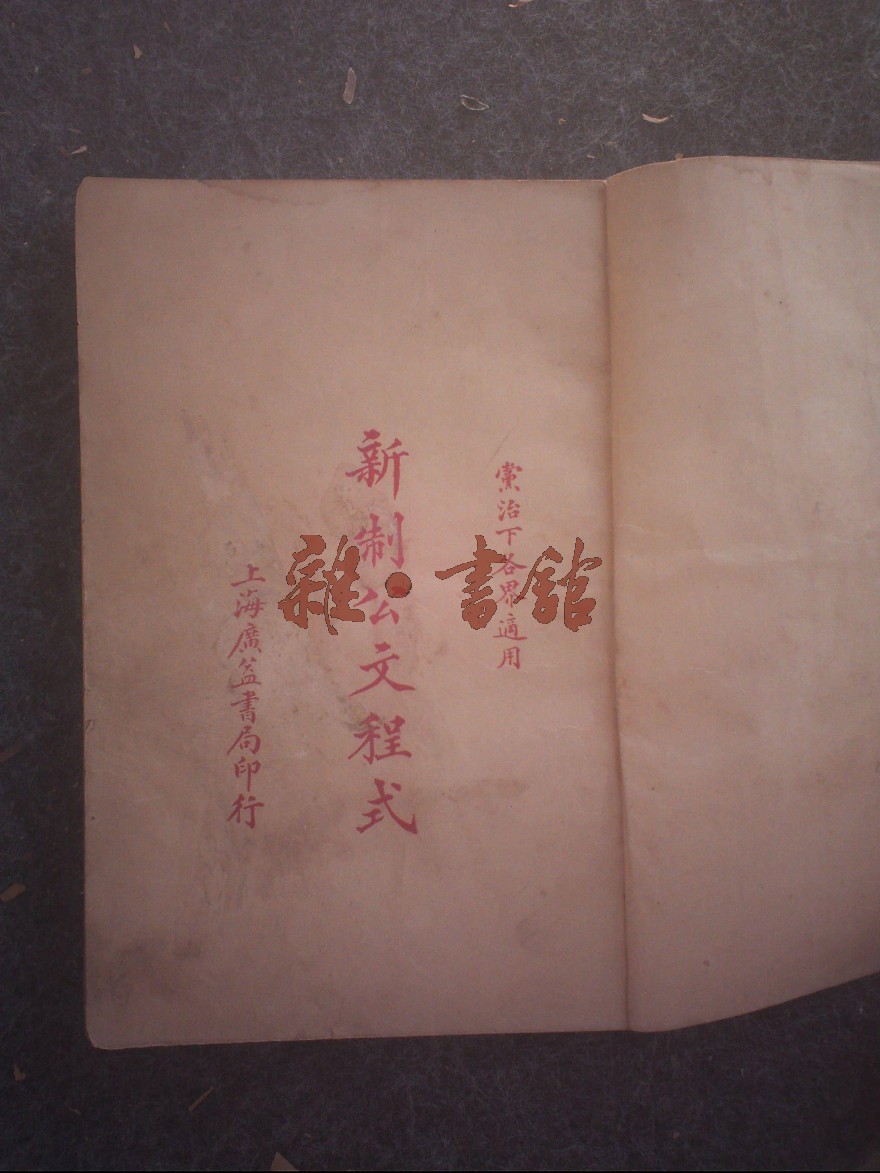 黨治下各界適用
新制公文程式
上海廣益書局印行
雜·書館